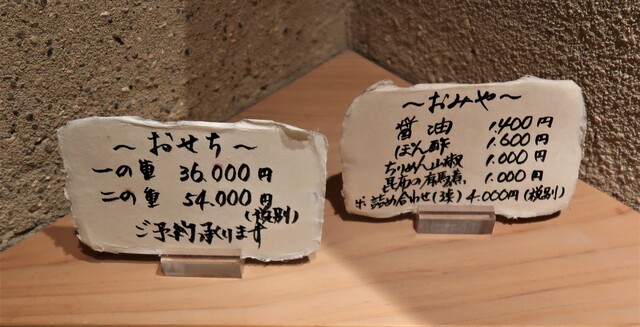 ～おせち～
一の重 36.000円
二の重 54.000円
(税別)
ご予約承ります
～おみや～
醤油 1.400円
ぽん酢 1.600円
ちりめん山椒 1.000円
昆布の有馬煮 1.000円
※詰め合わせ(3ヶ) 4.000円(税別)